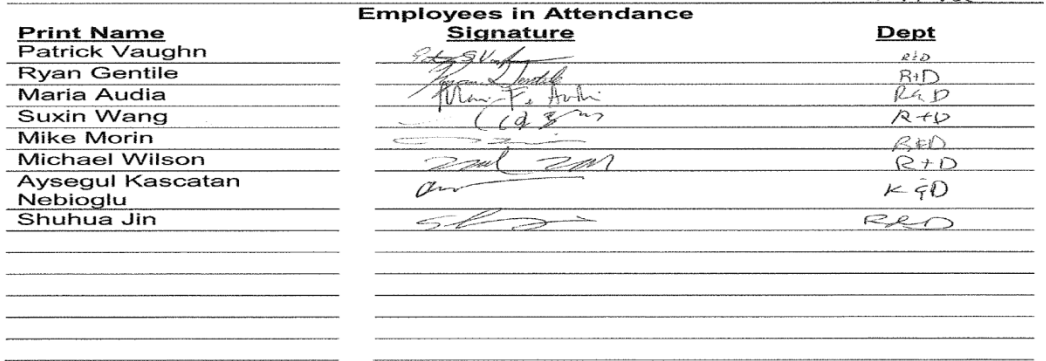 Employees in Attendance
Print Name Signature Dept
Patrick Vaughn R&D
Ryan Gentile Ryan Gentile R+D
Maria Audia Maria F. Audia R&D
Suxin Wang R+D
Mike Morin R&D
Michael Wilson R+D
Aysegul Kascatan
Nebioglu R&D
Shuhua Jin R&D